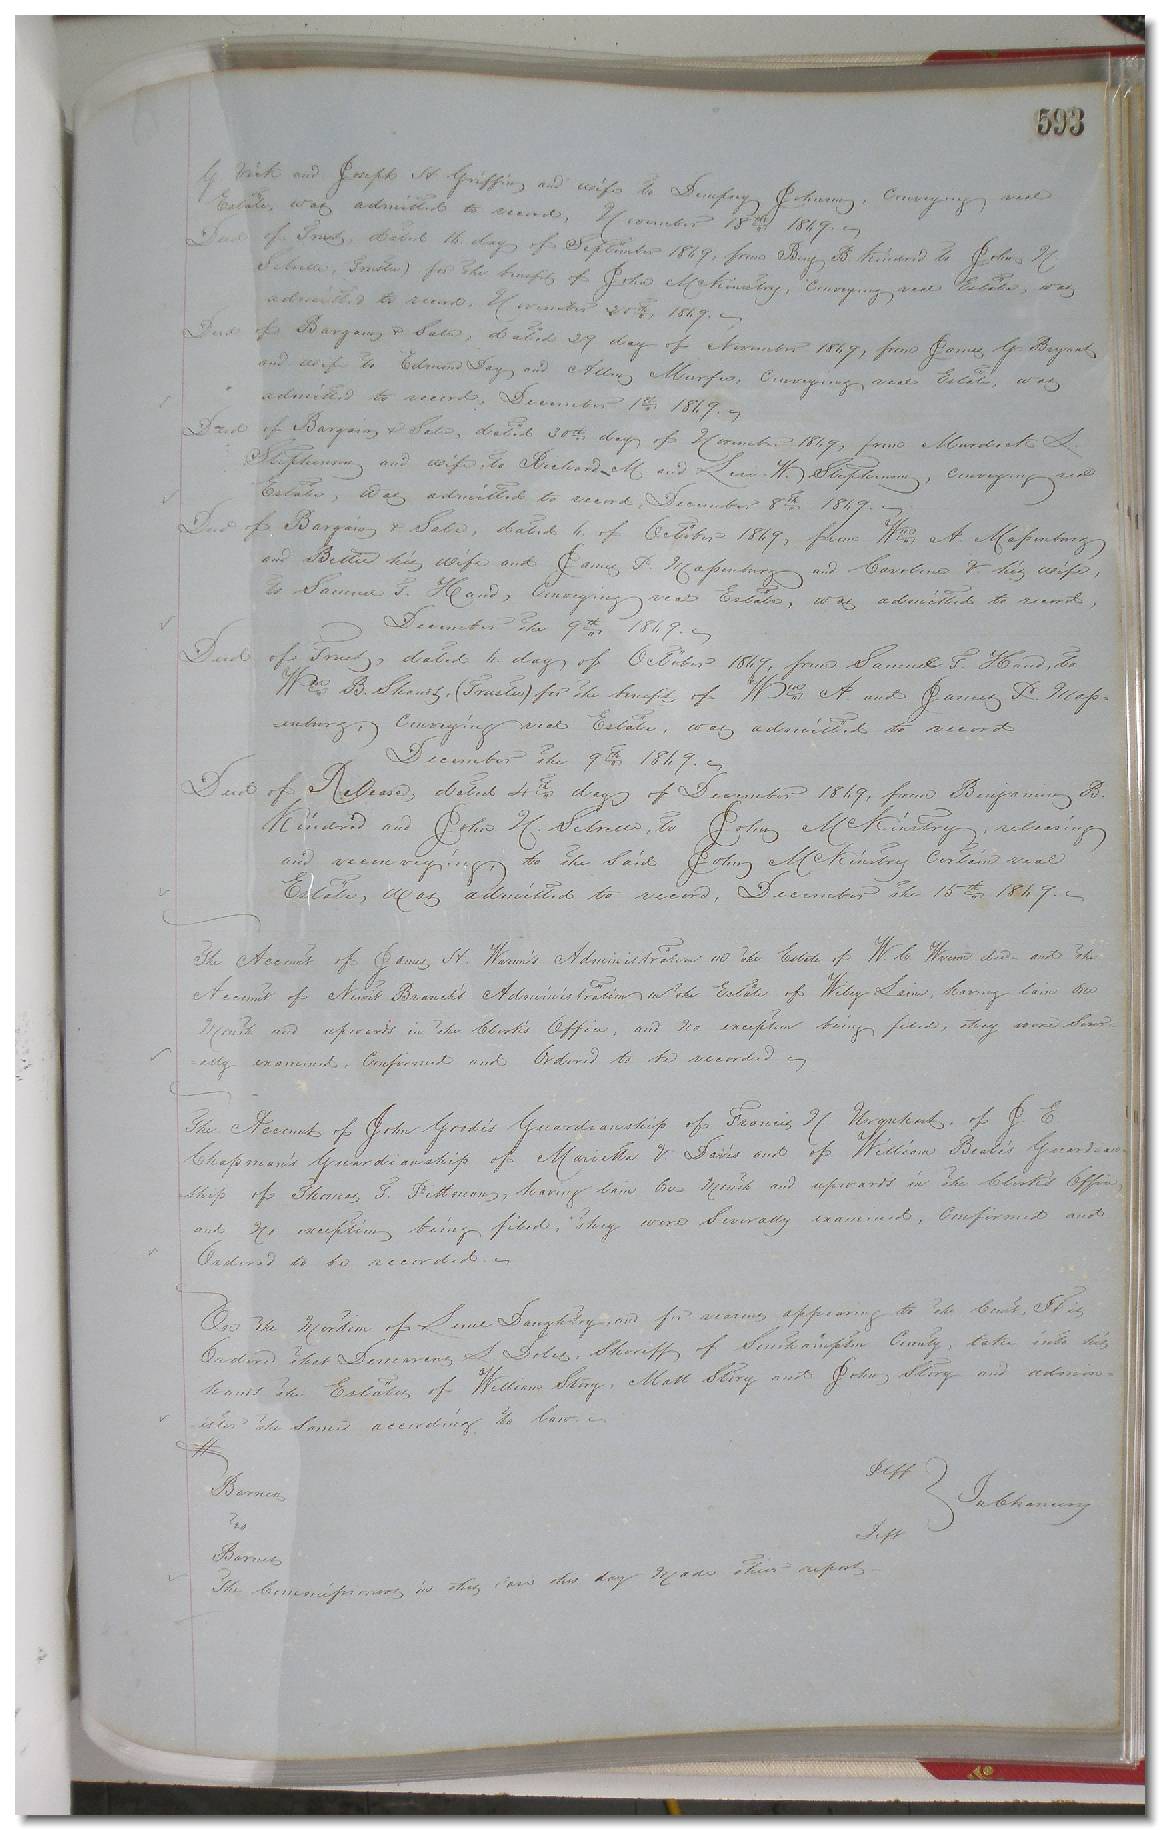 593
G Vick and Joseph H Griffin and wife to Dempsey Johnson, Conveying real
Estate, was admitted to record, November 18th 1869.
Deed of Trust, dated 16 day of September 1869, from Benj B. Kindred to John N.
Sebrelle, Trustee) for the benefit of John McKinstry, Conveying real Estate, was
admitted to record, November 20th 1869.
Deed of Bargain & Sale, dated 29 day of November 1869, from James G Bryant
and wife to Edmund Day and Allen Murfee, Conveying real Estate, was
admitted to record, December 1st 1869.
Deed of Bargain & Sale, dated 30th day of November 1869, from Murdock L.
Stephenson and wife, to Richard M and W. Stephenson, conveying real
Estate, was admitted to record, December 8th 1869.
Deed of Bargain & Sale, dated 4 of October 1869, from Wm A. Massenburg
and Bettie his wife and James D. Massenburg and Caroline V his wife,
to Samuel T. Hand, Conveying real Estate, was admitted to record,
December the 9th 1869.
Deed of Trust, dated 4 day of October 1869, from Samuel T. Hand, to
Wm B. Shands, (Trustee) for the benefit of Wm A and James D Mass-
enburg, Conveying real Estate, was admitted to record
December the 9th 1869.
Deed of Release, dated 4th day of December 1869, from Benjamin B.
Kindred and John N. Sebrelle, to John McKinstry, releasing
and reconveying, to the said John McKinstry Certain real
Estate, was admitted to record, December the 15th 1869.
The Account of James H. Warren's Administration on the Estate of W. C. Warren decd and the
Account of Newit Branch's Administration on the Estate of Wiley Laine, having lain one
Month and upwards in the Clerk's Office, and no exception being filed, they were Sever-
-ally examined, Confirmed and Ordered to be recorded
The Account of John Gordis Guardianship of Francis N Urquhart, of J. E
Chapman's Guardianship of Marietta V Davis and of William Beale's Guardian-
ship of Thomas T. Pittman, having lain one Month and upwards in the Clerk's Office,
and no exception being filed, they were Severally examined, Confirmed and
Ordered to be recorded.
On the Motion of Daughtry and for reasons appearing to the Court, It is
Ordered that S Doles, Sheriff of Southampton County, take into his
hands the Estates of William Story, Matt Story and John Story and admin-
ister the Same according to law.
Barnes Plff
vs In Chancery
Barnes Deft
The Commissioners in this case this day made their report